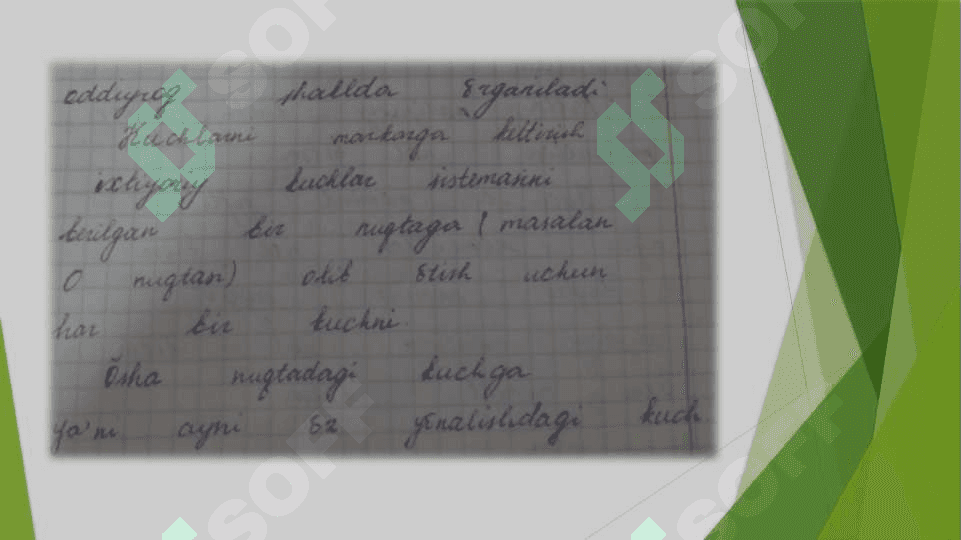 oddiyroq shallda õrganiladi
Kuchlarni markazga keltirish
ixtiyoriy kuchlar sistemasini
berilgan bir nuqtaga (masalan
O nuqtan) olib õtish uchun
har bir kuchni.
Õsha nuqtadagi kuchga
ya'ni ayni õz yõnalishdagi kuch
soff
soff
soff
soff